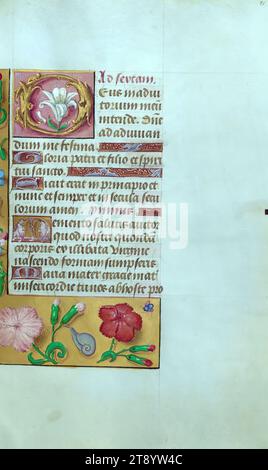 Ad sextam.
Eus in adiu
torium meū
intende. Dñe
ad adiuuan
dum me festina.
loria patri et filio et spiri
tui sancto.
icut erat in principio et
nunc et semper et in secula secu
lorum amen.
emento salutis auctor
quod nostri quondā
corporis ex illibata virgine
nascendo formam sumpseris
aria mater gracie mat
misericordie tu nos ab hoste pro
alamy
Image ID: 2T8YW4C
www.alamy.com